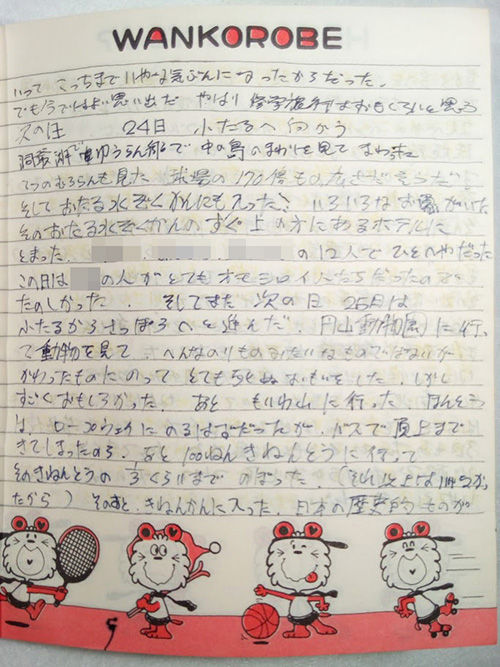 WANKOROBE
いって こっちまでいやな気ぶんになったからだった.
でも今ではよい思い出だ やはり 修学旅行はおもしろいと思う
次の日 24日 小たるへ向かう
洞爺湖で ゆうらん船で 中の島のまわりを見て まわった
てつのむろらんも見た 球場の170倍もの
そして おたる水ぞくかんにも入った! いろいろな お魚がいた
そのおたる水ぞくかんの すぐ上の方にあるホテルに
とまった. の12人でひとへやだった
この日は の人がとてもオモシロイ人たちだったので
たのしかった. そしてまた 次の日 25日は
小たるからさっぽろへと進んだ. 円山動物園に行っ
て動物を見て へんなのりものみたいなものではないが
かわったものにのって とても なおもいをした. しかし
すごくおもしろかった. あと もいわ山に行った ほんとう
は. ロープウェイに のるはずだったが. バスで頂上まで
きてしまったのら. あと 100ねんきねんとうに行って
そのきねんとうの 1/3くらいまで のぼった. (それ以上は
たから) そのあと. きねんかんに入った. 日本の歴史的ものが